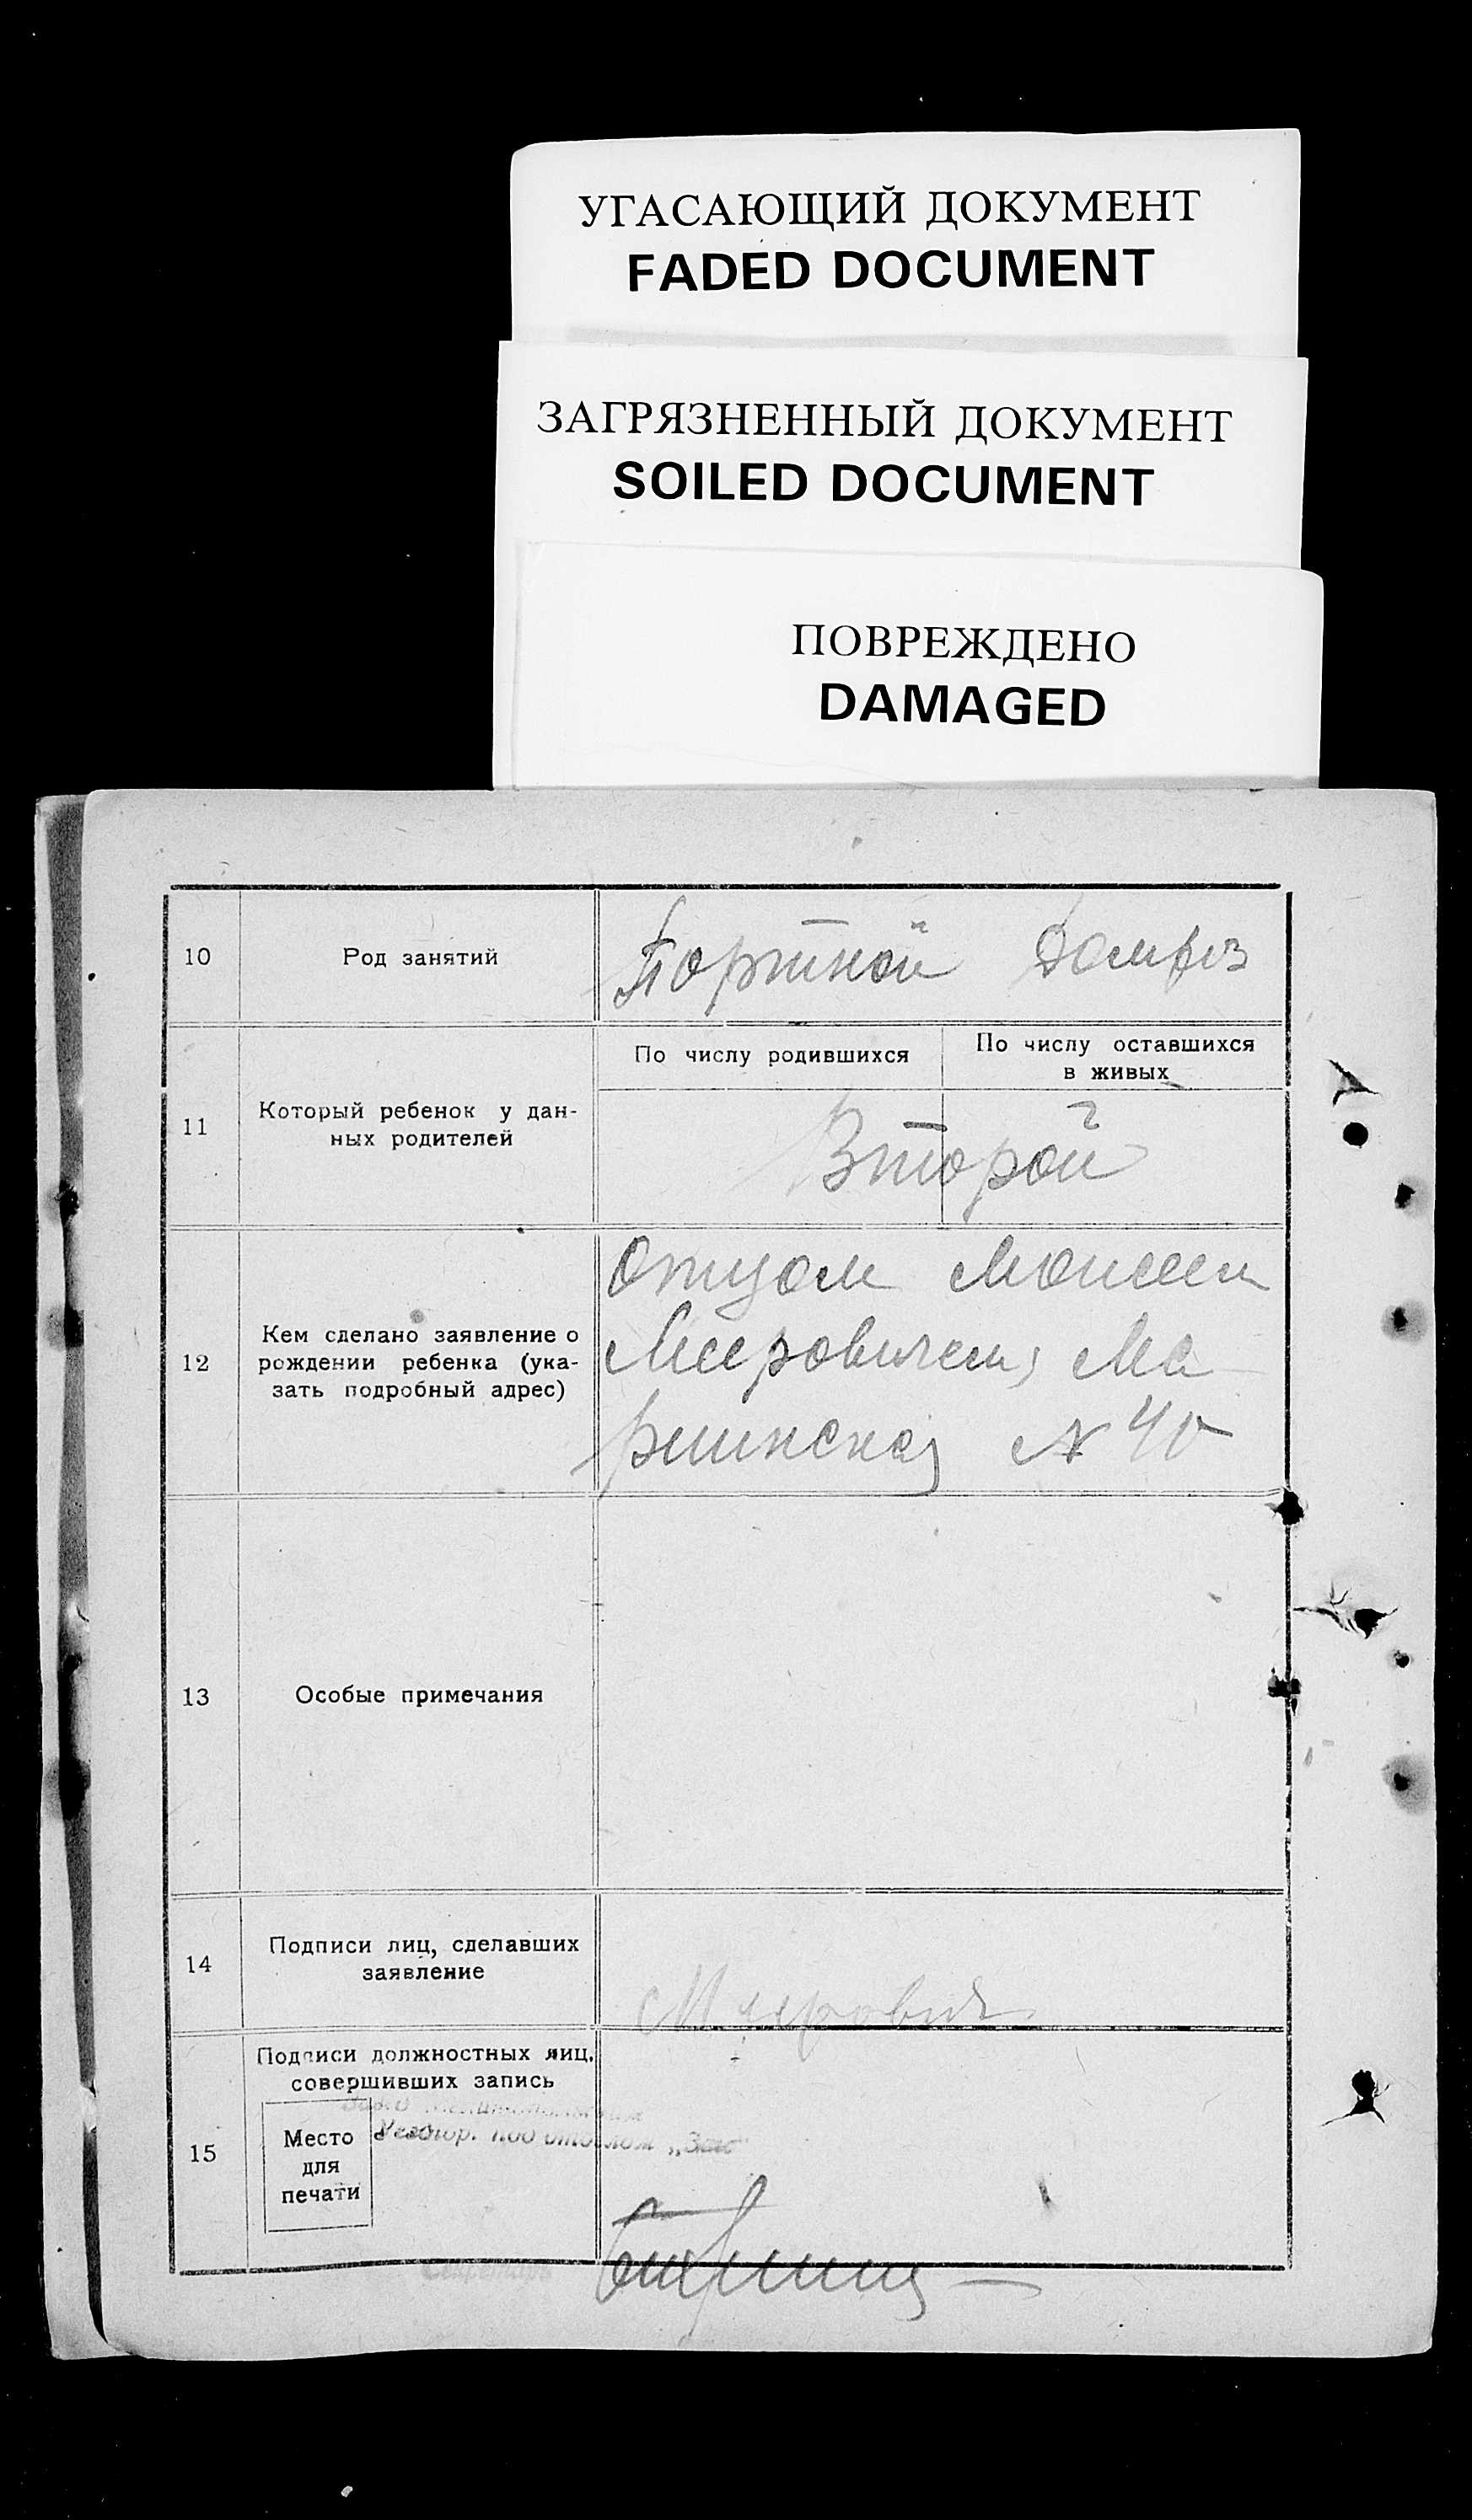 УГАСАЮЩИЙ ДОКУМЕНТ
FADED DOCUMENT
ЗАГРЯЗНЕННЫЙ ДОКУМЕНТ
SOILED DOCUMENT
ПОВРЕЖДЕНО
DAMAGED
10
Род занятий
Портной Домхоз
11
Который ребенок у дан-
ных родителей
По числу родившихся
По числу оставшихся
в живых
Второй
12
Кем сделано заявление о
рождении ребенка (ука-
зать подробный адрес)
Отцом Моисеем
Мееровичем, Ма
риинская N 40
13
Особые примечания
14
Подписи лиц, сделавших
заявление
Меерович
15
Подписи должностных лиц,
совершивших запись
Место
для
печати
Секретарь